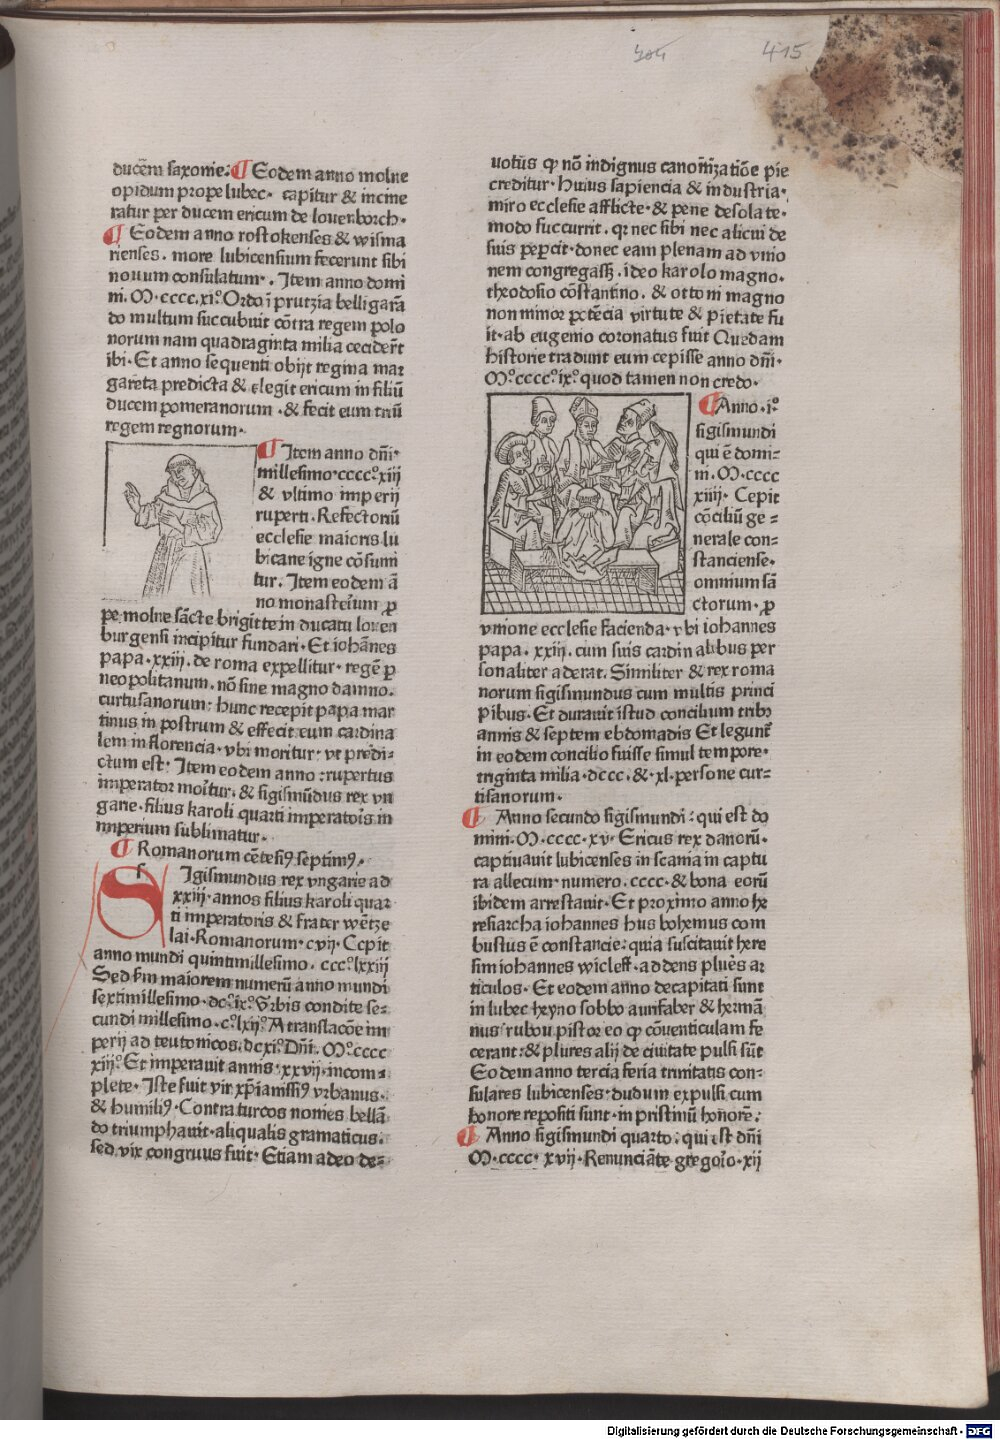 415
ducēm saxonie: ¶ Eodem anno molne
opidum prope lubec· capitur & incine
ratur per ducem ericum de louenborch·
¶ Eodem anno rostokenses & wisma
rienses· more lubicensium fecerunt sibi
nouum consulatum·. Item anno domi
ni. M·cccc·xi.º Ordo ī prutzia belligarā
do multum succubuit cōtra regem polo
norum nam quadraginta milia cecider̄t
ibi· Et anno sequenti obijt regina mar
gareta predicta & elegit ericum in filiū
ducem pomeranorum ·& fecit eum triū
regem regnorum·
¶ Item anno dn̄i·
millesimo·cccc.º xiij
& vltimo imperij
ruperti· Refectoriū
ecclesie maioris lu
bicane igne cōsumi
tur· Item eodem ā
no monasterium p̱
pe molne sācte brigitte in ducatu louen
burgensi incipitur fundari· Et iohānes
papa·xxiij· de roma expellitur· regē p̱
neopolitanum· nō sine magno damno·
curtusanorum: hunc recepit papa mar
tinus in postrum & effecit eum cardina
lem in florencia· vbi moritur· vt predi-
ctum est: Item eodem anno :rupertus
imperator moītur· & sigismūdus rex vn
garie· filius karoli quarti imperatoīs in
imperium sublimatur·
¶ Romanorum cētesiꝰ septimꝰ·
SIgismundus rex vngarie ad
xxiij· annos filius karoli quar
ti imperatoris & frater wētze
lai· Romanorum· cvij· Cepit
anno mundi quintimillesimo· ccc·lxxiij
Sed fm maiorem numerū anno mundi
sextimillesimo·dc.º ix.º Vrbis condite se-
cundi millesimo·c.º lxij.º A translacōe im
perij ad teutonicos·dcxi.º Dn̄i· M.º cccc
xiij.º Et imperauit annis·xxvij·incom-
plete· Iste fuit vir xp̄ianissiꝰ vrbanus·
& humiliꝰ· Contra turcos nonies bellā
do triumphauit·aliqualis gramaticus·
sed vix congruus fuit· Etiam adeo de-
uotus ꝙ nō indignus canonīzatiōe pie
creditur· Huius sapiencia & industria·
miro ecclesie afflicte·& pene desolate·
modo succurrit· qꝛ nec sibi nec alicui de
suis pepercit·donec eam plenam ad vnio
nem congregass̄· ideo karolo magno·
theodosio cōstantino· & ottoni magno
non minor potēcia virtute & pietate fu
it·ab eugenio coronatus fuit Quedam
historie tradunt eum cepisse anno dn̄i·
M.º cccc.º ix.º quod tamen non credo·
¶ Anno·i.º
sigismundi
qui ē domi-
ni· M·cccc
xiiij· Cepit
cōciliū ge-
nerale con-
stanciense·
omnium sā
ctorum· p̱
vnione ecclesie facienda·vbi iohannes
papa·xxiij· cum suis cardinalibus per
sonaliter aderat· Similiter & rex roma
norum sigismundus cum multis princi
pibus· Et durauit istud concilium tribꝫ
annis & septem ebdomadis Et legunt̄
in eodem concilio fuisse simul tempore·
triginta milia·dccc·&·xl·persone cur-
tisanorum·
¶ Anno secundo sigismundi: qui est do
mini· M·cccc·xv· Ericus rex danorū·
captiuauit lubicenses in scania in captu
ra allecum·numero·cccc·& bona eorū
ibidem arrestauit· Et proximo anno he
resiarcha iohannes hus bohemus com
bustus ē constancie: quia suscitauit here
sim iohannes wicleff·addens plures ar
ticulos· Et eodem anno decapitati sunt
in lubec heyno sobbo aurifaber & hermā
nus rubou pistor eo ꝙ cōuenticulam fe
cerant:& plures alij de ciuitate pulsi sūt
Eodem anno tercia feria trinitatis con-
sulares lubicenses·dudum expulsi cum
honore repositi sunt·in pristinū honorē:
¶ Anno sigismundi quarto: qui est dn̄i
M·cccc·xvij· Renunciāte gregorio·xij
Digitalisierung gefördert durch die Deutsche Forschungsgemeinschaft - DFG